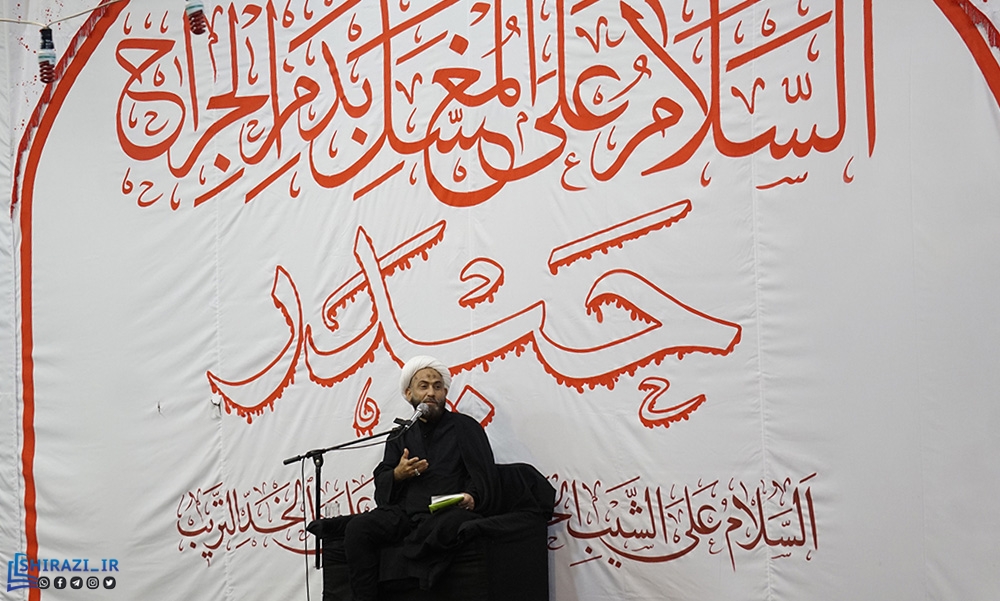 السَّلامُ عَلَى المُغَسَّلِ بِدَمِ الجِرَاحِ
حیدر
السَّلامُ عَلَى الشَّيْبِ الْخَدِّ التَّرِيبِ
SHIRAZI_IR